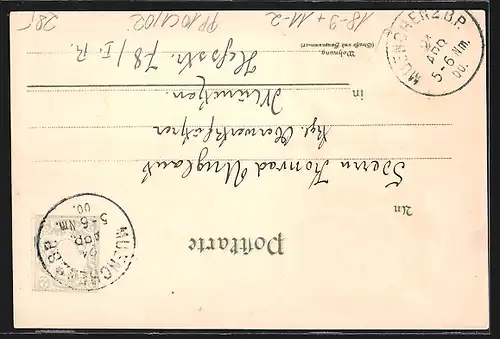 Postkarte
An
Herrn Konrad Unglaub
kgl. Oberwerkführer
in München.
Wohnung
(Straße und Hausnummer)
Heßstr. 78/I. R.
MUENCHEN 2.B.P.
24
APR.
5-6 Nm.
00.
MUENCHEN 2.B.P.
APR
5-6 Nm.
00.
18-9 + 11-2